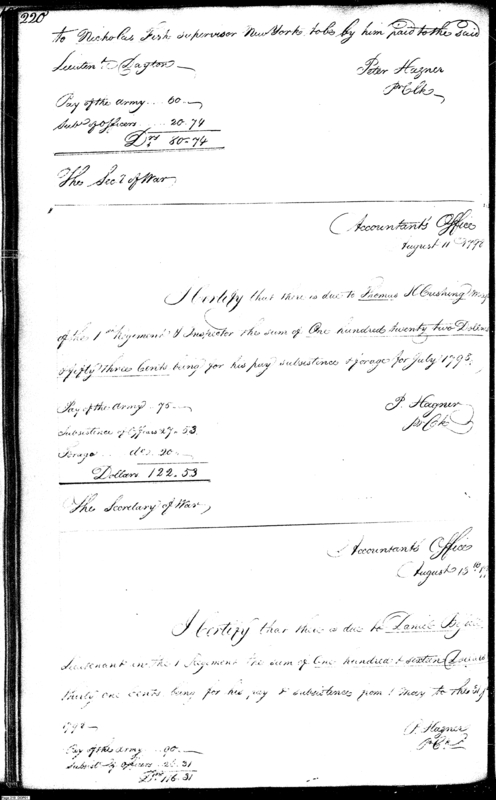 220
to Nicholas Fish supervisor New York to be by him paid to the said
Lieutent Dayton
Peter Hagner
pr Clk
Pay of the army .. 60 —
Subs of officers .. 20.74
Drs 80.74
The Secy of War
Accountant's Office
August 11 1798
I Certify that there is due to Thomas H Cushing Major
of the 1st Regiment & Inspector the sum of One hundred twenty two Dollars
& fifty three Cents being for his pay subsistence & forage for July 1798.
P. Hagner
pr Clk
Pay of the Army 75 —
Subsistence of Officers 27.53
Forage do. 20 —
Dollars 122.53
The Secretary of War
Accountant's Office
August 13th 17
I Certify that there is due to Daniel
Lieutenant in the 1 Regiment the sum of One hundred & sixteen Dollars
thirty one cents being for his pay & subsistence from 1 May to the 31 July
1798 —
P. Hagner
pr Clk
Pay of the Army .. 90 —
Subsist. of Officers 26.31
Drs 116.31